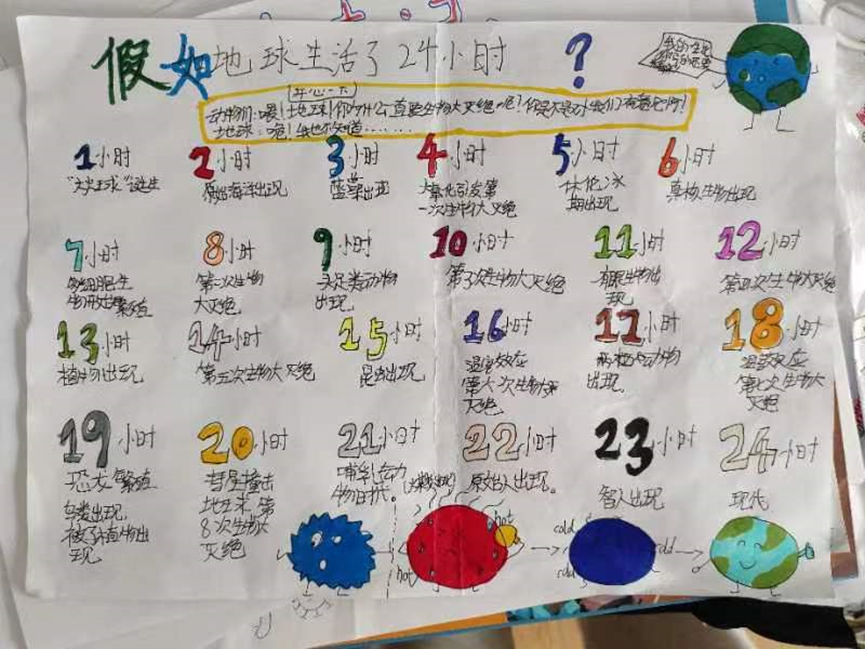 假如地球生活了24小时?
开心一下
动物们:喂!地球!你为什么一直要生物大灭绝呢!你是不是对我们有意见啊!
地球:呃!我也不知道……
1小时 2小时 3小时 4小时 5小时 6小时
"火球"诞生 原始海洋出现 蓝藻出现 大氧化引发第 休伦冰 真核生物出现
一次生物大灭绝 期出现
7小时 8小时 9小时 10小时 11小时 12小时
多细胞生 第二次生物 头足类动物 第3次生物大灭绝 有眼生物出 第四次生物大灭绝
物开始繁殖 大灭绝 出现 现
13小时 14小时 15小时 16小时 17小时 18小时
植物出现 第五次生物大灭绝 昆虫出现 温室效应 两栖动物 温室效应
第六次生物大 出现 第七次生物大
灭绝 灭绝
19小时 20小时 21小时 22小时 23小时 24小时
恐龙繁殖 彗星撞击 哺乳动 原始人出现。 智人出现 现代
鸟类出现 地球,第 物时代。
被子植物出 8次生物大
现 灭绝
hot cold
hot cold cold